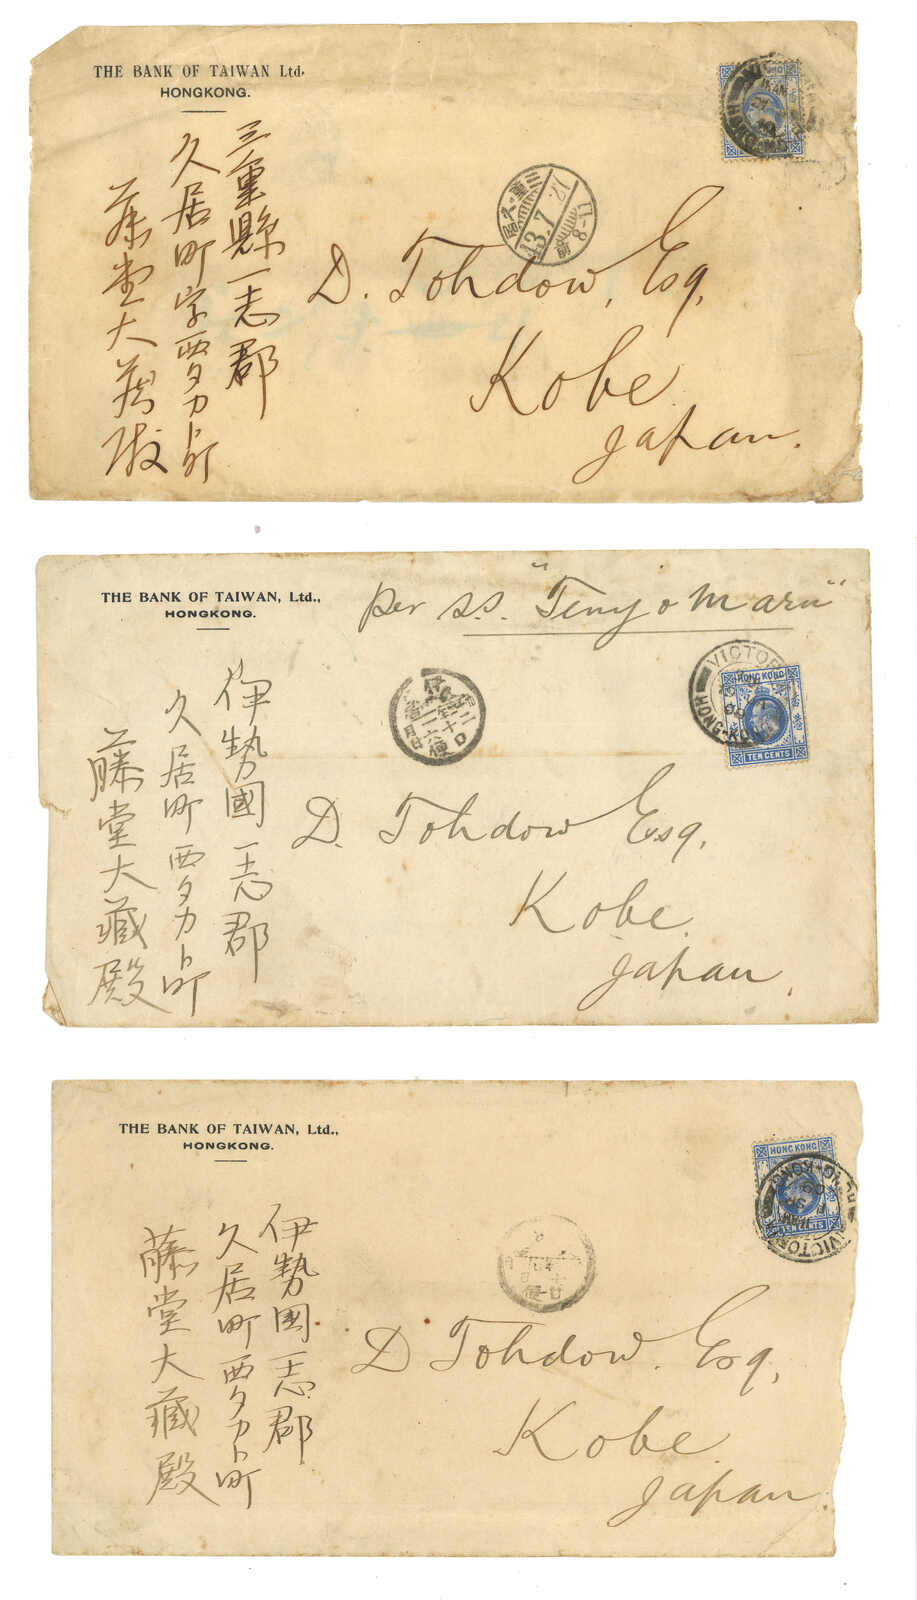 THE BANK OF TAIWAN Ltd.
HONGKONG.
三重縣一志郡
久居町字西タカト町
藤堂大藏殿
三重・久居
13.7.27
前8-11
D. Tohdow, Esq,
Kobe
Japan.
THE BANK OF TAIWAN, Ltd.,
HONGKONG.
per s.s. "Tenyo Maru"
VICTOR
HONG-KONG
HONG KONG
TEN CENTS
伊勢國一志郡
久居町西タカト町
藤堂大藏殿
D. Tohdow Esq,
Kobe.
Japan,
THE BANK OF TAIWAN, Ltd.,
HONGKONG.
HONG KONG
HONG-KONG
VICTOR
CENTS
伊勢國一志郡
久居町西タカト町
藤堂大藏殿
D Tohdow. Esq,
Kobe
Japan.